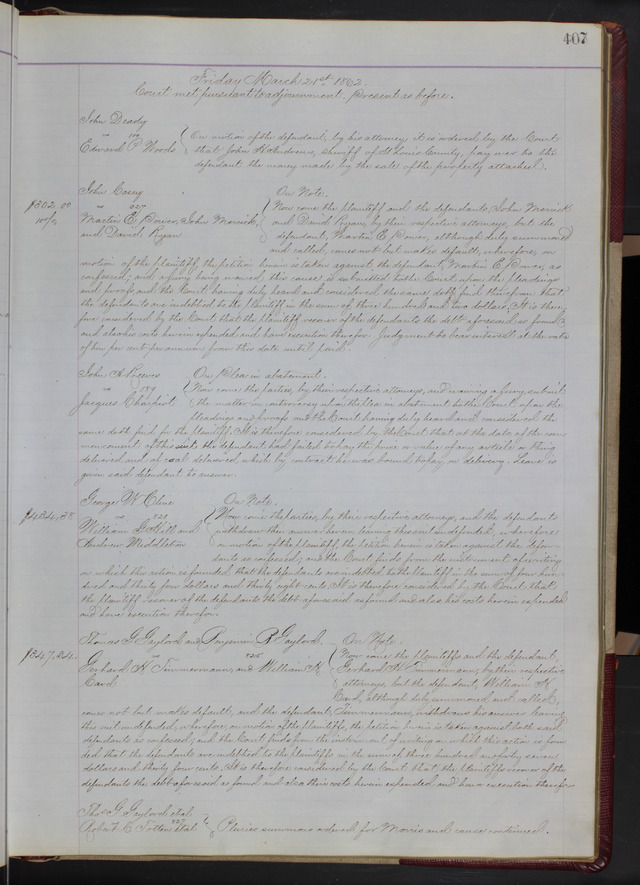 407
Friday March 21st 1862.
Court met pursuant to adjournment. Present as before.
John Deady
vs
Edward P. Woods
On motion of the defendant, by his attorney, it is ordered by the Court
that John Andrews, Sheriff of St Louis County, pay over to the
defendant the money made by the sale of the property attached.
John Casey On Note.
vs 227
Martin E. Power, John Merrick,
and David Ryan
$302.00
10%
Now come the plaintiff and the defendants, John Merrick
and David Ryan, by their respective attorneys, but the
defendant, Martin E. Power, although duly summoned
and called, comes not but makes default, wherefore, on
motion of the plaintiff, the petition herein is taken against the defendant, Martin E. Power, as
confessed, and a jury being waived, this cause is submitted to the Court upon the pleadings
and proofs, and the Court having duly heard and considered the same doth find therefrom that
the defendants are indebted to the plaintiff in the sum of three hundred and two dollars. It is there-
fore considered by the Court that the plaintiff recover of the defendants the debt aforesaid as found
and also his costs herein expended and have execution therefor. Judgment to bear interest at the rate
of ten per cent per annum from this date until paid.
John A. Reeves On Plea in abatement.
vs
Jacques
Now come the parties, by their respective attorneys, and waiving a jury, submit
the matter in controversy upon the plea in abatement to the Court upon the
pleadings and proofs and the Court having duly heard and considered the
same doth find for the plaintiff. It is therefore considered by the Court that at the date of the com-
mencement of this suit the defendant had failed to pay the price or value of any article or thing
delivered and of coal delivered, which by contract he was bound to pay on delivery. Leave is
given said defendant to answer.
George W. Cline On Note.
vs
William G. Hill and
Andrew Middleton
$434.38
Now come the parties, by their respective attorneys, and the defendants
withdraw their answer herein, leaving this suit undefended, wherefore
on motion of the plaintiff, the petition herein is taken against the defen-
dants as confessed, and the Court finds from the instrument of writing
on which the action is founded, that the defendants are indebted to the plaintiff in the sum of four hun-
dred and thirty four dollars and thirty eight cents. It is therefore considered by the Court that
the plaintiff recover of the defendants the debt aforesaid as found and also his costs herein expended
and have execution therefor.
Thomas G. Gaylord and Benjamin B. Gaylord On Note.
vs
Gerhard H. Timmermann, and William H.
Card.
$347.34
Now come the plaintiffs and the defendant,
Gerhard H. Timmermann, by their respective
attorneys, but the defendant, William H.
Card, although duly summoned and called,
comes not but makes default, and the defendant, Timmermann, withdraws his answer leaving
this suit undefended, wherefore, on motion of the plaintiffs, the petition herein is taken against both said
defendants as confessed, and the Court finds from the instrument of writing on which this action is foun-
ded that the defendants are indebted to the plaintiffs in the sum of three hundred and forty seven
dollars and thirty four cents. It is therefore considered by the Court that the plaintiffs recover of the
defendants the debt aforesaid as found and also their costs herein expended and have execution therefor
Thos G. Gaylord et al
vs
Robert C. Totten et al
Pluries summons ordered for Morris and cause continued.